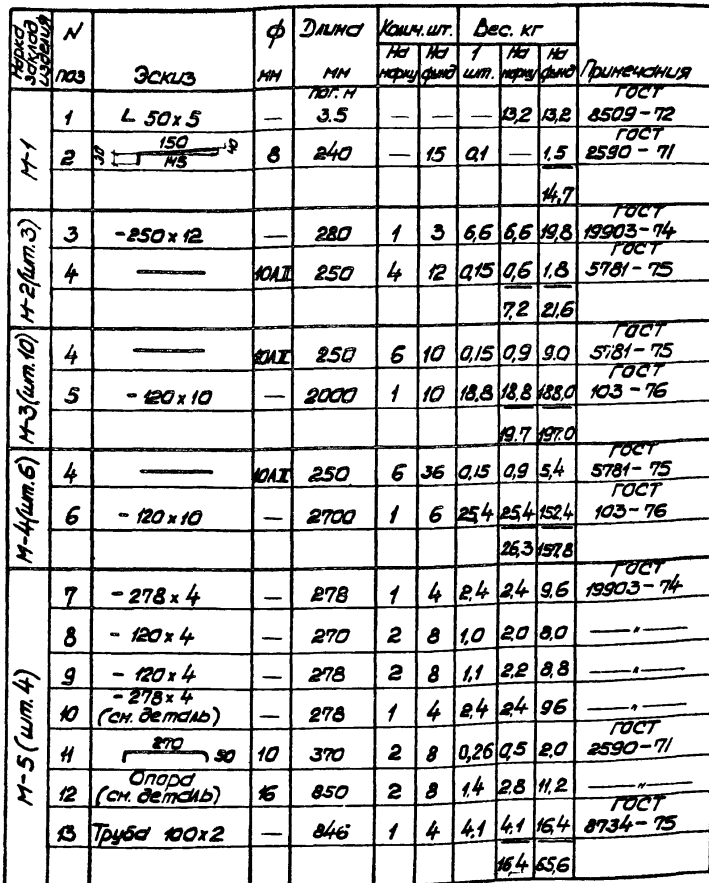 Марка заклад изделия | N поз | Эскиз | ф мм | Длина мм | Колич. шт. | Вес. кг | Примечания
На марку | На фунд | 1 шт. | На марку | На фунд
М-1
1 | L 50 x 5 | — | пог. м 3.5 | — | — | — | 13,2 | 13,2 | ГОСТ 8509-72
2 | 150 | 8 | 240 | — | 15 | 0,1 | — | 1,5 | ГОСТ 2590-71
14,7
М-2 (шт. 3)
3 | -250 x 12 | — | 280 | 1 | 3 | 6,6 | 6,6 | 19,8 | ГОСТ 19903-74
4 | —— | 10АII | 250 | 4 | 12 | 0,15 | 0,6 | 1,8 | ГОСТ 5781-75
7,2 | 21,6
М-3 (шт. 10)
4 | —— | 10АII | 250 | 6 | 10 | 0,15 | 0,9 | 9.0 | ГОСТ 5781-75
5 | -120 x 10 | — | 2000 | 1 | 10 | 18,8 | 18,8 | 188,0 | ГОСТ 103-76
19.7 | 197.0
М-4 (шт. 6)
4 | —— | 10АII | 250 | 6 | 36 | 0,15 | 0,9 | 5,4 | ГОСТ 5781-75
6 | -120 x 10 | — | 2700 | 1 | 6 | 25,4 | 25,4 | 152,4 | ГОСТ 103-76
26,3 | 157,8
М-5 (шт. 4)
7 | -278 x 4 | — | 278 | 1 | 4 | 2,4 | 2,4 | 9,6 | ГОСТ 19903-74
8 | -120 x 4 | — | 270 | 2 | 8 | 1,0 | 2,0 | 8,0 | —"—
9 | -120 x 4 | — | 278 | 2 | 8 | 1,1 | 2,2 | 8,8 | —"—
10 | -278 x 4 (см. деталь) | — | 278 | 1 | 4 | 2,4 | 2,4 | 96 | —"—
11 | 270 50 | 10 | 370 | 2 | 8 | 0,26 | 0,5 | 2,0 | ГОСТ 2590-71
12 | Опора (см. деталь) | 16 | 850 | 2 | 8 | 1.4 | 2,8 | 11,2 | —"—
13 | Труба 100x2 | — | 846 | 1 | 4 | 4.1 | 4.1 | 16,4 | ГОСТ 8734-75
16,4 | 65,6